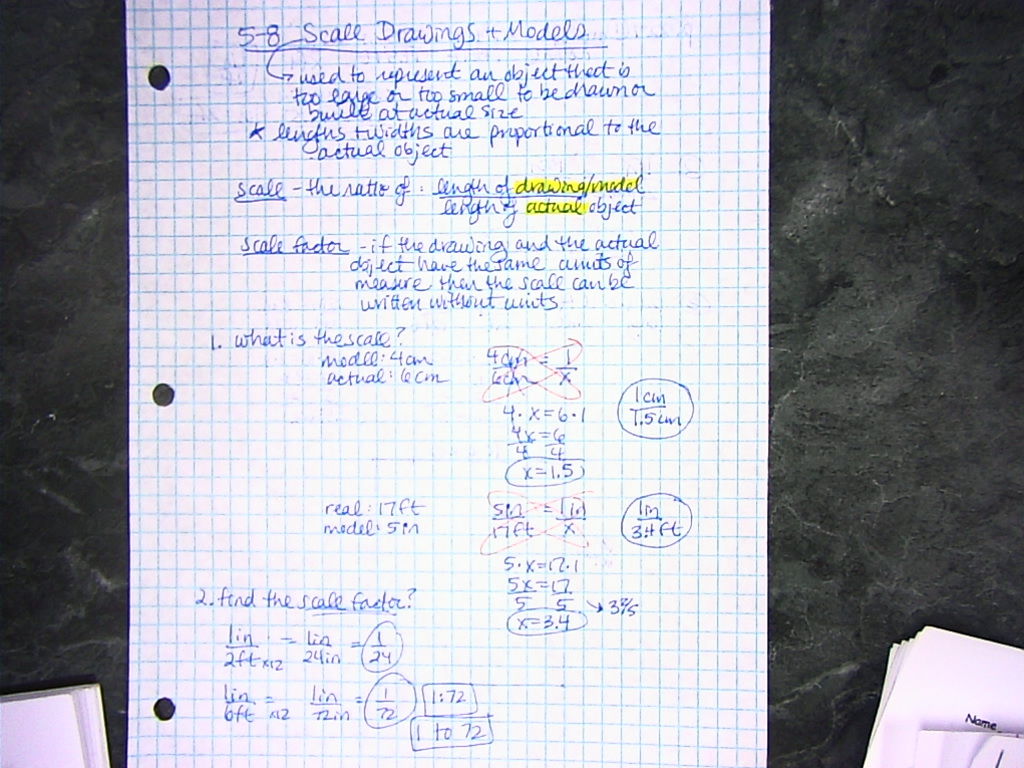 5-8 Scale Drawings + Models
used to represent an object that is
too large or too small to be drawn or
built at actual size
* lengths + widths are proportional to the
actual object
scale - the ratio of : length of drawing/model
length of actual object
scale factor - if the drawing and the actual
object have the same units of
measure then the scale can be
written without units.
1. what is the scale?
model: 4cm
actual: 6cm
4cm/6cm = 1/x
4·x=6·1
4x/4=6/4
x=1.5
1cm/1.5cm
real: 17ft
model: 5in
5in/17ft = 1in/x
5·x=17·1
5x/5=17/5
→ 3 2/5
x=3.4
1in/3.4ft
2. find the scale factor?
1in/2ft x12 = 1in/24in = 1/24
1in/6ft x12 = 1in/72in = 1/72
1:72
1 to 72
Name